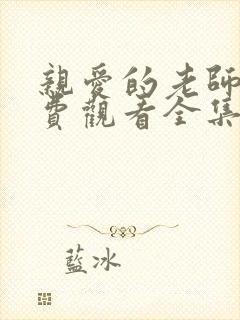 親愛的老師
費觀看全集
藍冰